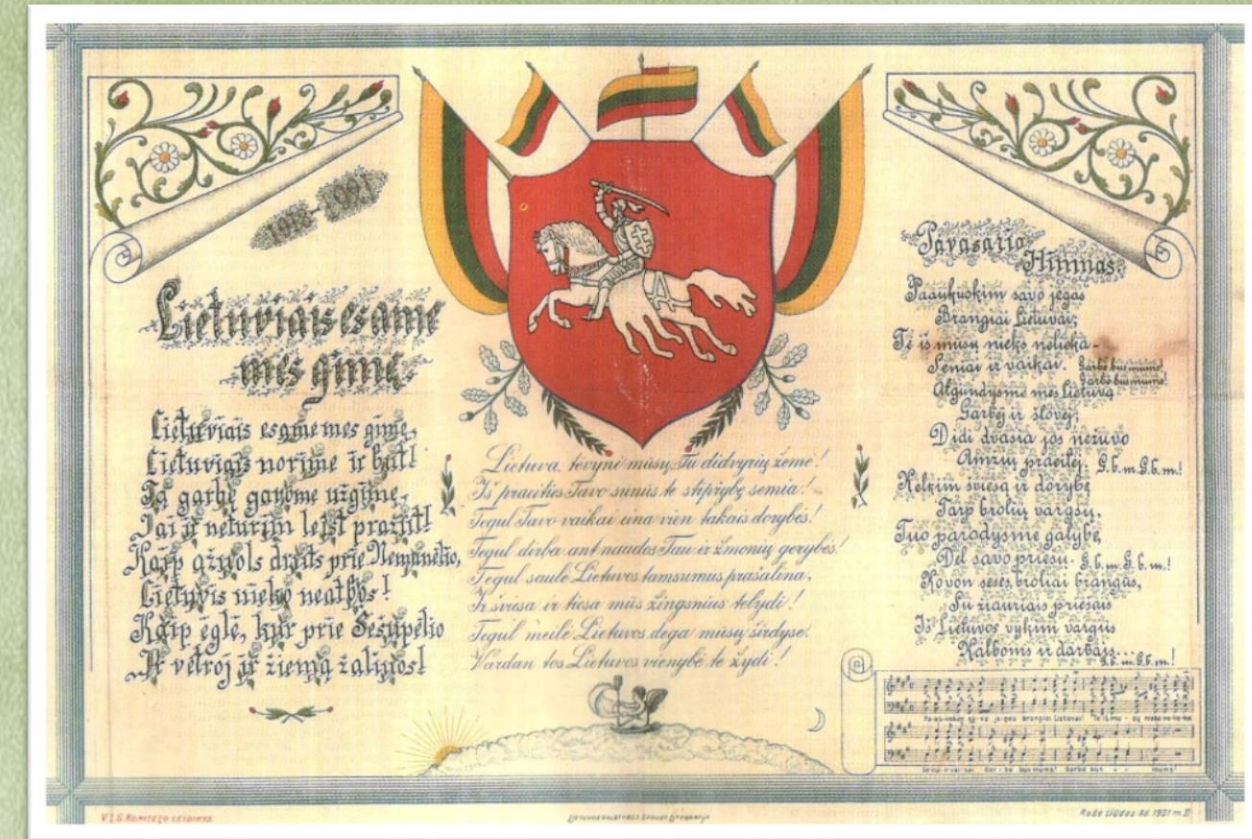 1918–1921
Lietuviais esame
mes gimę
Lietuviais esame mes gimę,
Lietuviais norime ir būt!
Tą garbę gavome užgimę,
Jai ir neturim leist pražūt!
Kaip ąžuols drūts prie Nemunėlio,
Lietuvis nieko neatbos!
Kaip eglė, kur prie Šešupėlio
Ir vėtroj ir žiemą žaliuos!
Lietuva, tėvyne mūsų, Tu didvyrių žeme!
Iš praeities Tavo sūnūs te stiprybę semia!
Tegul Tavo vaikai eina vien takais dorybės!
Tegul dirba ant naudos Tau ir žmonių gerybės!
Tegul saulė Lietuvos tamsumus prašalina,
Ir šviesa ir tiesa mūs žingsnius telydi!
Tegul meilė Lietuvos dega mūsų širdyse.
Vardan tos Lietuvos vienybė te žydi!
Pavasario
Himnas
Paaukuokim savo jėgas
Brangiai Lietuvai;
Te iš mūsų nieks nelieka -
Seniai ir vaikai. Garbė bus mums!
Garbė bus mums!
Atgaudysme mes Lietuvą
Garbėj ir šlovėj;
Didi dvasia jos nežuvo
Amžių praeitėj. G.b.m.G.b.m.!
Kelkim šviesą ir dorybę
Tarp brolių vargšų,
Tuo parodysme galybę,
Dėl savo priešų. G.b.m.G.b.m.!
Kovon sesės, broliai brangūs,
Su žiauriais priešais
Iš Lietuvos vykim vargus
Kalboms ir darbais...
G.b.m.G.b.m.!
V.L.G. Komiteto leidinys.